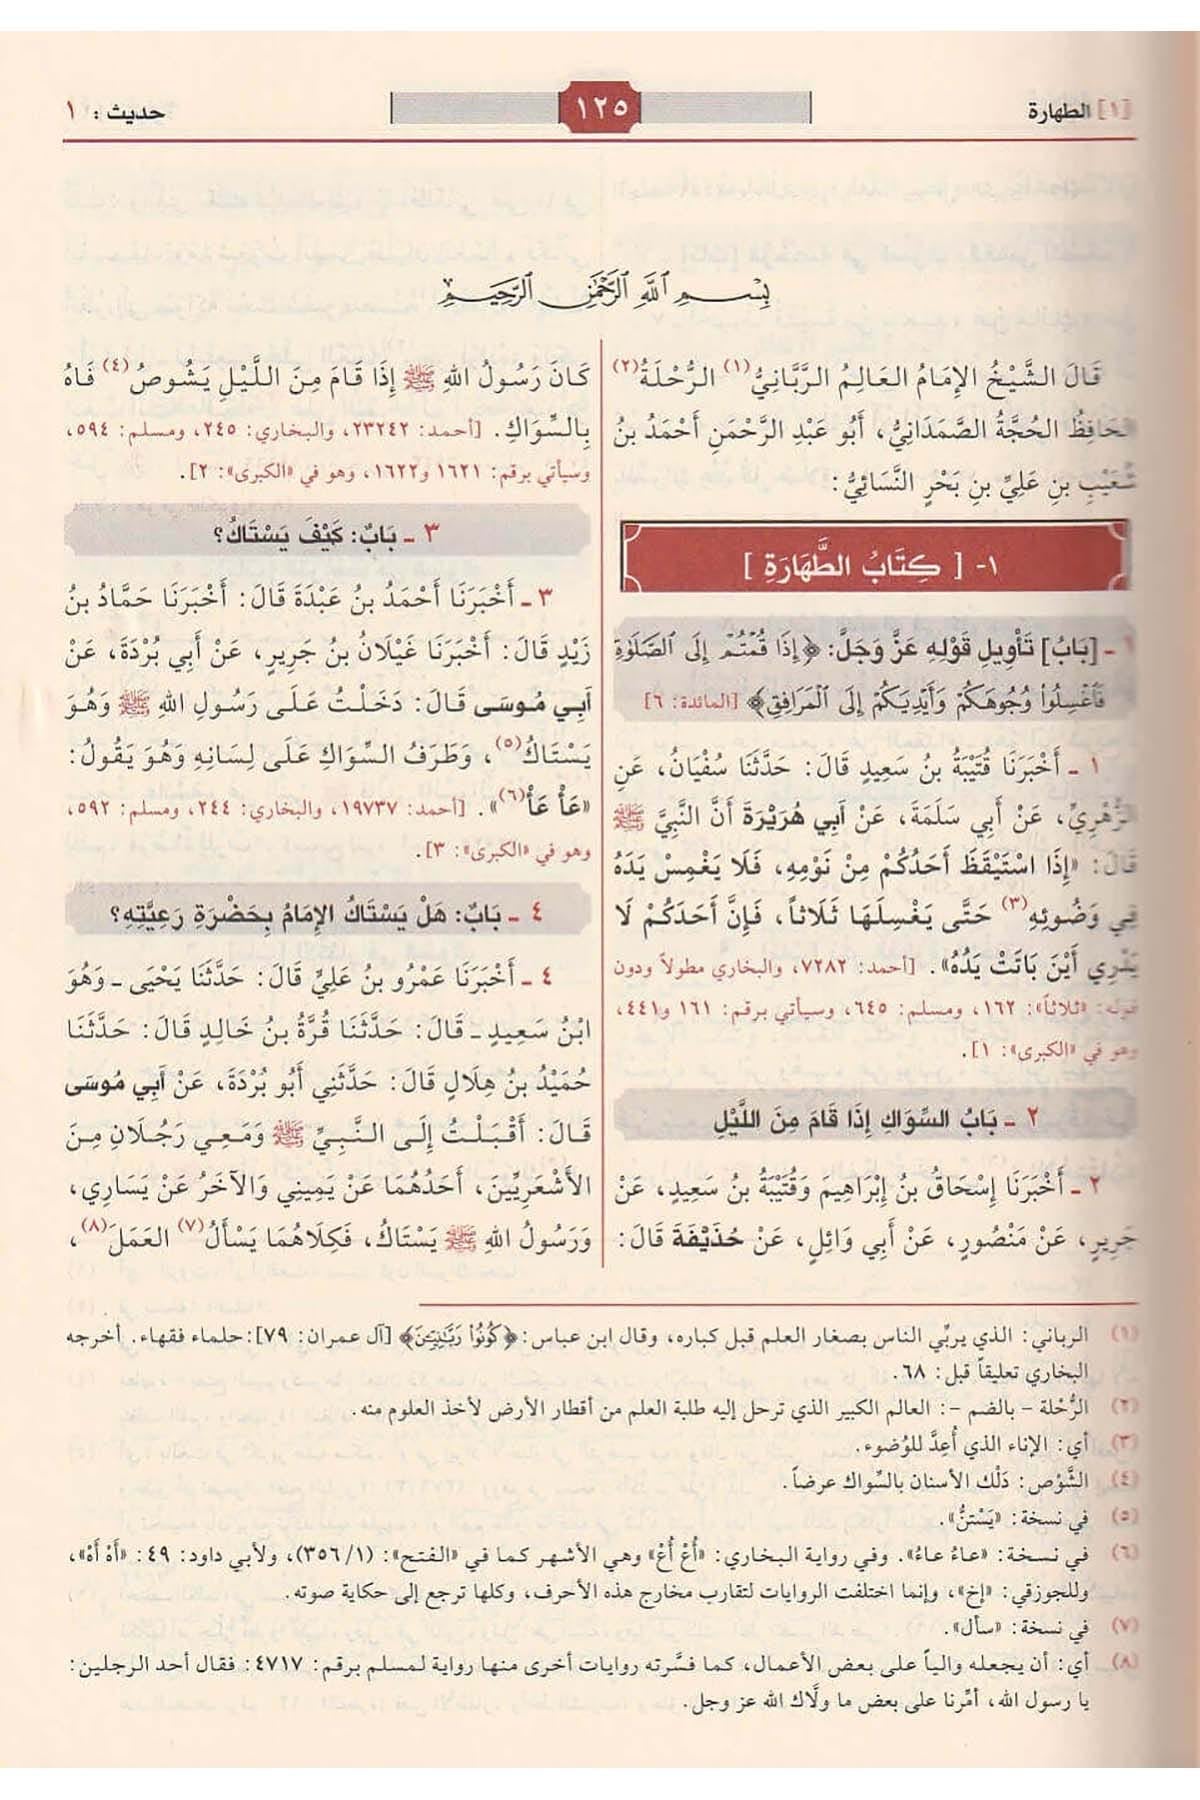 [١] الطهارة
١٢٥
حديث: ١
بِسْمِ اللهِ الرَّحْمَنِ الرَّحِيمِ
قَالَ الشَّيْخُ الإِمَامُ العَالِمُ الرَّبَّانِيُّ(١) الرُّحْلَةُ(٢)
الحَافِظُ الحُجَّةُ الصَّمَدَانِيُّ، أَبُو عَبْدِ الرَّحْمَنِ أَحْمَدُ بنُ
شُعَيْبِ بنِ عَلِيِّ بنِ بَحْرٍ النَّسَائِيُّ:
١- [ كِتَابُ الطَّهَارَةِ ]
١ - [بَابُ] تَأْوِيلِ قَوْلِهِ عَزَّ وَجَلَّ: ﴿إِذَا قُمْتُمْ إِلَى الصَّلَوٰةِ
فَٱغْسِلُوا۟ وُجُوهَكُمْ وَأَيْدِيَكُمْ إِلَى الْمَرَافِقِ﴾ [المائدة: ٦]
١ - أَخْبَرَنَا قُتَيْبَةُ بنُ سَعِيدٍ قَالَ: حَدَّثَنَا سُفْيَانُ، عَنِ
الزُّهْرِيِّ، عَنْ أَبِي سَلَمَةَ، عَنْ أَبِي هُرَيْرَةَ أَنَّ النَّبِيَّ ﷺ
قَالَ: «إِذَا اسْتَيْقَظَ أَحَدُكُمْ مِنْ نَوْمِهِ، فَلَا يَغْمِسْ يَدَهُ
فِي وَضُوئِهِ(٣) حَتَّى يَغْسِلَهَا ثَلَاثاً، فَإِنَّ أَحَدَكُمْ لَا
يَدْرِي أَيْنَ بَاتَتْ يَدُهُ». [أحمد: ٧٢٨٢، والبخاري مطولاً ودون
قوله: «ثلاثاً»: ١٦٢، ومسلم: ٦٤٥، وسيأتي برقم: ١٦١ و٤٤١،
وهو في «الكبرى»: ١].
٢ - بَابُ السِّوَاكِ إِذَا قَامَ مِنَ اللَّيْلِ
٢ - أَخْبَرَنَا إِسْحَاقُ بنُ إِبْرَاهِيمَ وَقُتَيْبَةُ بنُ سَعِيدٍ، عَنْ
جَرِيرٍ، عَنْ مَنْصُورٍ، عَنْ أَبِي وَائِلٍ، عَنْ حُذَيْفَةَ قَالَ:
كَانَ رَسُولُ اللهِ ﷺ إِذَا قَامَ مِنَ اللَّيْلِ يَشُوصُ(٤) فَاهُ
بِالسِّوَاكِ. [أحمد: ٢٣٢٤٢، والبخاري: ٢٤٥، ومسلم: ٥٩٤،
وسيأتي برقم: ١٦٢١ و١٦٢٢، وهو في «الكبرى»: ٢].
٣ - بَابٌ: كَيْفَ يَسْتَاكُ؟
٣ - أَخْبَرَنَا أَحْمَدُ بنُ عَبْدَةَ قَالَ: أَخْبَرَنَا حَمَّادُ بنُ
زَيْدٍ قَالَ: أَخْبَرَنَا غَيْلَانُ بنُ جَرِيرٍ، عَنْ أَبِي بُرْدَةَ، عَنْ
أَبِي مُوسَى قَالَ: دَخَلْتُ عَلَى رَسُولِ اللهِ ﷺ وَهُوَ
يَسْتَاكُ(٥)، وَطَرَفُ السِّوَاكِ عَلَى لِسَانِهِ وَهُوَ يَقُولُ:
«عَأْ عَأْ(٦)». [أحمد: ١٩٧٣٧، والبخاري: ٢٤٤، ومسلم: ٥٩٢،
وهو في «الكبرى»: ٣].
٤ - بَابٌ: هَلْ يَسْتَاكُ الإِمَامُ بِحَضْرَةِ رَعِيَّتِهِ؟
٤ - أَخْبَرَنَا عَمْرُو بنُ عَلِيٍّ قَالَ: حَدَّثَنَا يَحْيَى - وَهُوَ
ابْنُ سَعِيدٍ - قَالَ: حَدَّثَنَا قُرَّةُ بنُ خَالِدٍ قَالَ: حَدَّثَنَا
حُمَيْدُ بنُ هِلَالٍ قَالَ: حَدَّثَنِي أَبُو بُرْدَةَ، عَنْ أَبِي مُوسَى
قَالَ: أَقْبَلْتُ إِلَى النَّبِيِّ ﷺ وَمَعِي رَجُلَانِ مِنَ
الأَشْعَرِيِّينَ، أَحَدُهُمَا عَنْ يَمِينِي وَالآخَرُ عَنْ يَسَارِي،
وَرَسُولُ اللهِ ﷺ يَسْتَاكُ، فَكِلَاهُمَا يَسْأَلُ(٧) العَمَلَ(٨)،
(١) الرباني: الذي يربِّي الناس بصغار العلم قبل كباره، وقال ابن عباس: ﴿كُونُوا۟ رَبَّٰنِيِّـۧنَ﴾ [آل عمران: ٧٩]: حلماء فقهاء. أخرجه
البخاري تعليقاً قبل: ٦٨.
(٢) الرُّحلة - بالضم -: العالم الكبير الذي ترحل إليه طلبة العلم من أقطار الأرض لأخذ العلوم منه.
(٣) أي: الإناء الذي أُعِدَّ للوُضوء.
(٤) الشَّوْص: دَلْك الأسنان بالسِّواك عرضاً.
(٥) في نسخة: «يَسْتَنُّ».
(٦) في نسخة: «عاءُ عاءُ». وفي رواية البخاري: «أُعْ أُعْ» وهي الأشهر كما في «الفتح»: (١/ ٣٥٦)، ولأبي داود: ٤٩: «أَهْ أَهْ»،
وللجوزقي: «إخ»، وإنما اختلفت الروايات لتقارب مخارج هذه الأحرف، وكلها ترجع إلى حكاية صوته.
(٧) في نسخة: «سأل».
(٨) أي: أن يجعله والياً على بعض الأعمال، كما فسَّرته روايات أخرى منها رواية لمسلم برقم: ٤٧١٧: فقال أحد الرجلين:
يا رسول الله، أمِّرنا على بعض ما ولَّاك الله عز وجل.